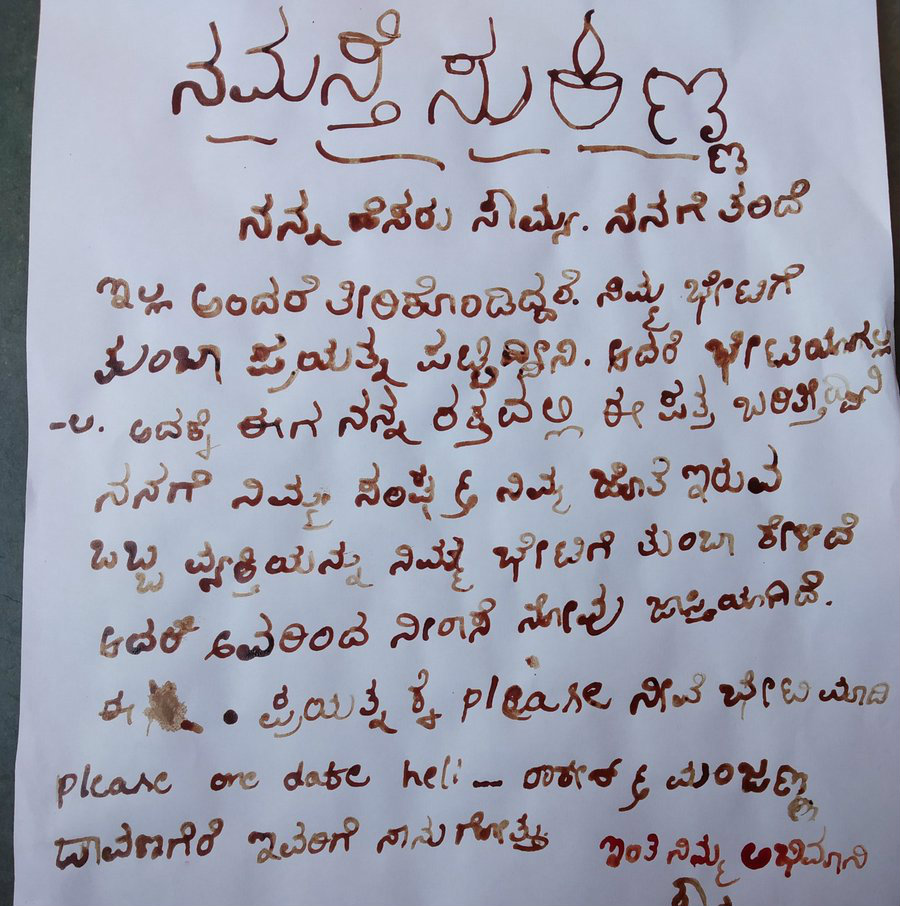 ನಮಸ್ತೆ ಸುಕಿಣ್ಣ
ನನ್ನ ಹೆಸರು ಸೌಮ್ಯ. ನನಗೆ ತಂದೆ
ಇಲ್ಲ ಅಂದರೆ ತೀರಿಕೊಂಡಿದ್ದಾರೆ. ನಿಮ್ಮ ಭೇಟಿಗೆ
ತುಂಬಾ ಪ್ರಯತ್ನ ಪಟ್ಟಿದ್ದಿನಿ. ಆದರೆ ಭೇಟಿಯಾಗಲ್ಲ
-ಲ. ಅದಕ್ಕೆ ಈಗ ನನ್ನ ರಕ್ತದಲ್ಲಿ ಈ ಪತ್ರ ಬರಿತೀದ್ದಿನಿ
ನನಗೆ ನಿಮ್ಮ ಸಂಪರ್ಕ ನಿಮ್ಮ ಜೊತೆ ಇರುವ
ಒಬ್ಬ ವ್ಯಕ್ತಿಯನ್ನು ನಿಮ್ಮ ಭೇಟಿಗೆ ತುಂಬಾ ಕೇಳಿದೆ
ಆದರೆ ಅವರಿಂದ ನೀರಾಸೆ ನೋವು ಜಾಸ್ತಿಯಾಗಿದೆ.
ಈ ಪ್ರಯತ್ನ ಕ್ಕೆ please ನೀವೆ ಭೇಟಿ ಮಾಡಿ
please one date heli _ ರಾಕೇಶ್ ಮಂಜಣ್ಣ
ದಾವಣಗೆರೆ ಇವರಿಗೆ ನಾನು ಗೋತ್ತು
ಇಂತಿ ನಿಮ್ಮ ಅಭಿಮಾನಿ